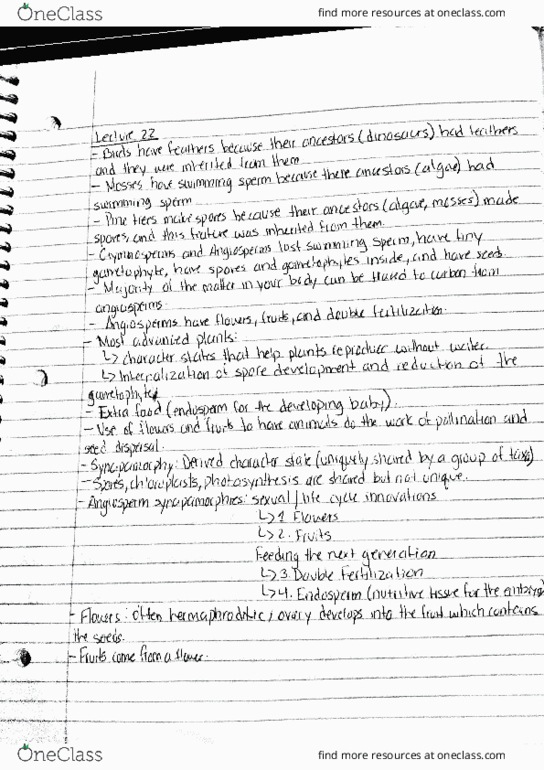 OneClass
find more resources at oneclass.com
Lecture 22
- Birds have feathers because their ancestors (dinosaurs) had feathers
and they were inherited from them
- Mosses have swimming sperm because there ancestors (algae) had
swimming sperm
- Pine trees make spores because their ancestors (algae, mosses) made
spores, and this feature was inherited from them.
- Gymnosperms and Angiosperms lost swimming sperm, have tiny
gametophyte, have spores and gametophytes inside, and have seeds.
- Majority of the matter in your body can be traced to carbon from
angiosperms.
- Angiosperms have flowers, fruits, and double fertilization.
- Most advanced plants:
↳ character states that help plants reproduce without water.
↳ Internalization of spore development and reduction of the
gametophyte
- Extra food (endosperm for the developing baby).
- Use of flowers and fruits to have animals do the work of pollination and
seed dispersal.
- Synapomorphy: Derived character state (uniquely shared by a group of taxa)
- Spores, chloroplasts, photosynthesis are shared but not unique.
- Angiosperm synapomorphies: sexual/life cycle innovations
↳ 1. Flowers
↳ 2. Fruits
Feeding the next generation
↳ 3. Double Fertilization
↳ 4. Endosperm (nutritive tissue for the embryo)
- Flowers: Often hermaphroditic; ovary develops into the fruit which contains
the seeds.
- Fruits come from a flower.
OneClass
find more resources at oneclass.com